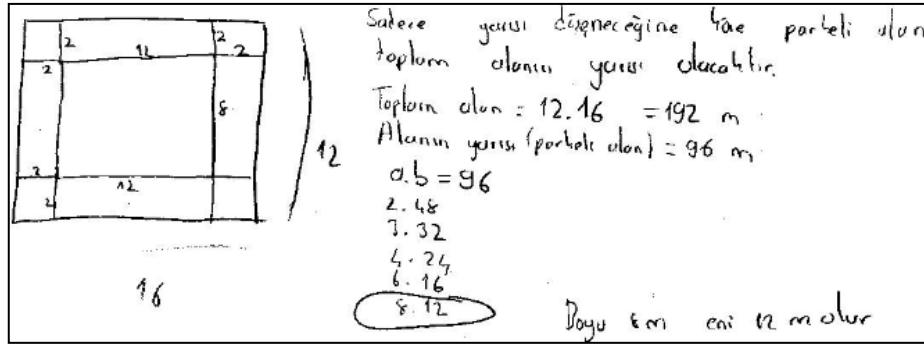 2 12 2 2
2
8
2 12
2
12
16
Sadece yarısı döşeneceğine göre parkeli alan
toplam alanın yarısı olacaktır.
Toplam alan = 12.16 = 192 m
Alanın yarısı (parkeli alan) = 96 m
a.b = 96
2.48
3.32
4.24
6.16
8.12
Boyu 8m eni 12 m olur